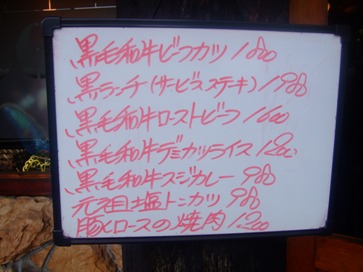 黒毛和牛ビーフカツ 1800
黒ランチ(サービスステーキ) 1988
黒毛和牛ローストビーフ 1600
黒毛和牛デミカツライス 1200
黒毛和牛スジカレー 988
元祖塩トンカツ 988
豚ヒロースの焼肉 1200